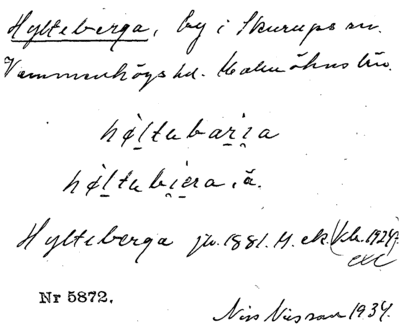 Hylteberga, by i Skurups sn.
Vemmenhögs hd. Malmöhus län.
hø̀ltubari̯a
hø̀ltubi̯era, ä.
Hylteberga jv. 1881. H. ek. (kb. 1924).
Nr 5872.
Nils Nilsson 1934.